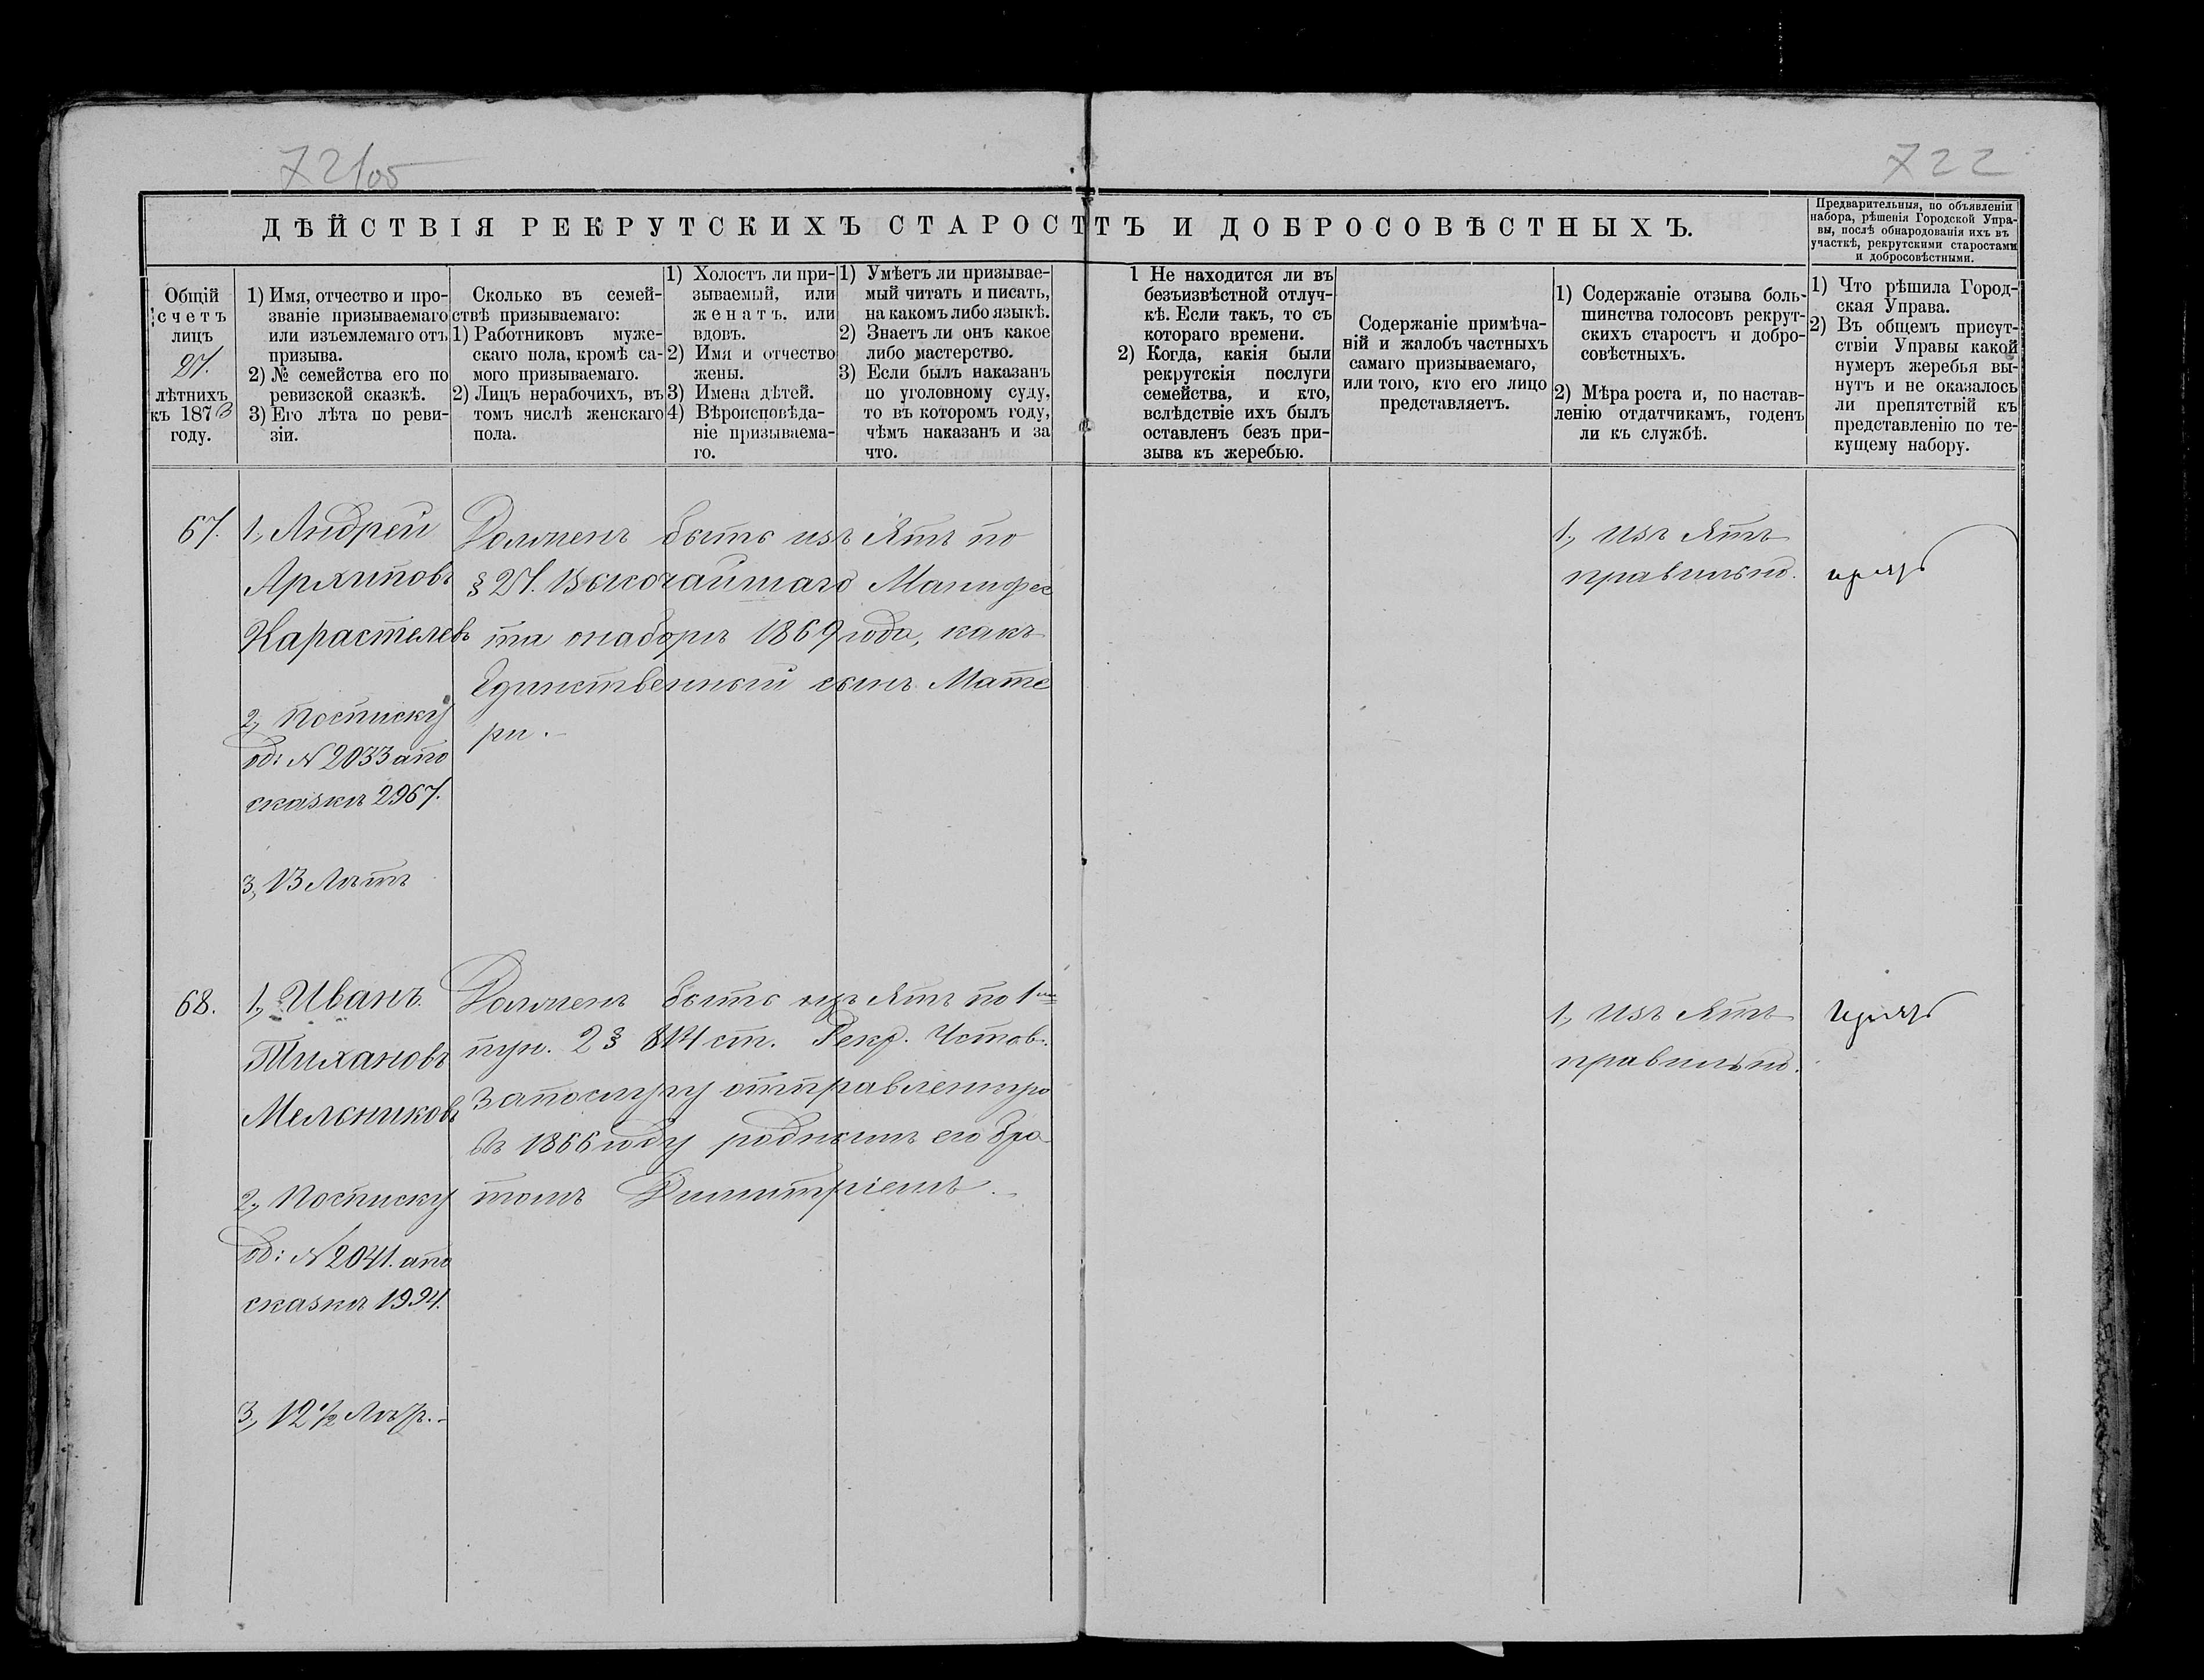 721об
722
ДѢЙСТВІЯ РЕКРУТСКИХЪ СТАРОСТЪ И ДОБРОСОВѢСТНЫХЪ.
Предварительныя, по объявленіи
набора, рѣшенія Городской Упра-
вы, послѣ обнародованія ихъ въ
участкѣ, рекрутскими старостами
и добросовѣстными.
Общій
счетъ
лицъ
27.
лѣтнихъ
къ 1873
году.
1) Имя, отчество и про-
званіе призываемаго
или изъемлемаго отъ
призыва.
2) № семейства его по
ревизской сказкѣ.
3) Его лѣта по реви-
зіи.
Сколько въ семей-
ствѣ призываемаго:
1) Работниковъ муже-
скаго пола, кромѣ са-
мого призываемаго.
2) Лицъ нерабочихъ, въ
томъ числѣ женскаго
пола.
1) Холостъ ли при-
зываемый, или
женатъ, или
вдовъ.
2) Имя и отчество
жены.
3) Имена дѣтей.
4) Вѣроисповѣда-
ніе призываема-
го.
1) Умѣетъ ли призывае-
мый читать и писать,
на какомъ либо языкѣ.
2) Знаетъ ли онъ какое
либо мастерство.
3) Если былъ наказанъ
по уголовному суду,
то въ которомъ году,
чѣмъ наказанъ и за
что.
1 Не находится ли въ
безъизвѣстной отлуч-
кѣ. Если такъ, то съ
котораго времени.
2) Когда, какія были
рекрутскія послуги
семейства, и кто,
вслѣдствіе ихъ былъ
оставленъ безъ при-
зыва къ жеребью.
Содержаніе примѣча-
ній и жалобъ частныхъ
самаго призываемаго,
или того, кто его лицо
представляетъ.
1) Содержаніе отзыва боль-
шинства голосовъ рекрут-
скихъ старостъ и добро-
совѣстныхъ.
2) Мѣра роста и, по настав-
ленію отдатчикамъ, годенъ
ли къ службѣ.
1) Что рѣшила Город-
ская Управа.
2) Въ общемъ присут-
ствіи Управы какой
нумеръ жеребья вы-
нутъ и не оказалось
ли препятствій къ
представленію по те-
кущему набору.
67.
1, Андрей
Архиповъ
Карастелевъ
2, Посписку
об: N 2033 апо
сказкѣ 2967.
3, 13 Лѣтъ
Долженъ быть изъ Ятъ по
§ 27. Высочайшаго Манифес
та онаборѣ 1869 года, какъ
Единственный сынъ Мате
ри.
1, Изъ Ятъ
правильно.
68.
1, Иванъ
Тихановъ
Мельниковъ
2, Посписку
об: N 2041. апо
сказкѣ 1994.
3, 12½ Лѣтъ.
Долженъ быть изъ Ятъ по 1му
пун. 2 § 814 ст. Рекр. Устав.
Запослугу отправленную
въ 1866 году роднымъ его бра
томъ Димитріемъ.
1, Изъ Ятъ
правильно.